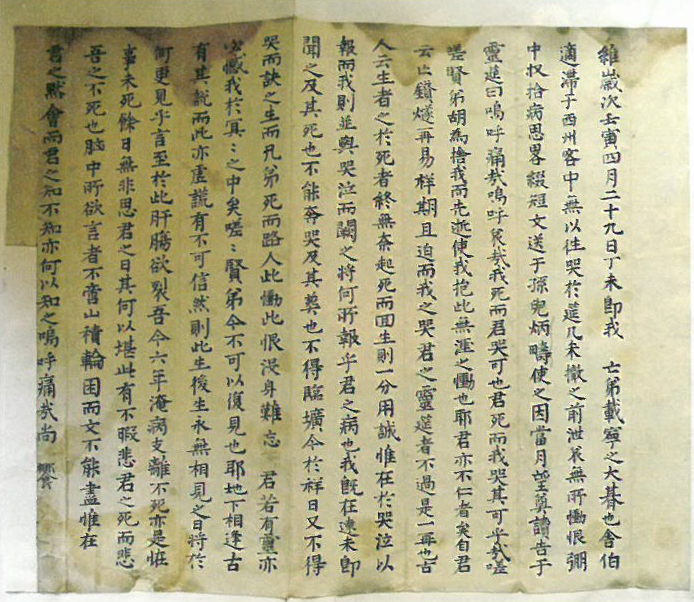 維歲次壬寅四月二十九日丁未卽我 亡弟載寧之大朞也舍伯
適滯于西州客中無以徃哭於筵几未撤之前泄哀無所慟恨弸
中扠拾病思畧綴短文送于孫兒炳疇使之因當月望奠讀告于
靈筵曰嗚呼痛哉嗚呼哀哉我死而君哭可也君死而我哭其可乎哉嗟
嗟賢弟胡爲捨我而先逝使我抱此無涯之慟也耶君亦不仁者矣自君
云亡鑽燧再易祥期且迫而我之哭君之靈筵者不過是一再也古
人云生者之於死者終無奈起死而回生則一分用誠惟在於哭泣以
報而我則並與哭泣而闕之將何所報乎君之病也我旣在遠未卽
聞之及其死也不能奔哭及其葬也不得臨壙今於祥日又不得
哭而訣之生而兄弟死而路人此慟此恨沒身難忘 君若有靈亦
必慽我於冥〻之中矣嗟〻賢弟今不可以復見也耶地下相逢古
有其說而此亦虛謊有不可信然則此生後生永無相見之日將於
何更見乎言至於此肝腸欲裂吾今六年淹病支離不死亦是恠
事未死餘日無非思君之日其何以堪此有不暇悲君之死而悲
吾之不死也腦中所欲言者不啻山積輪囷而文不能盡惟在
君之黙會而君之知不知亦何以知之嗚呼痛哉尚 饗